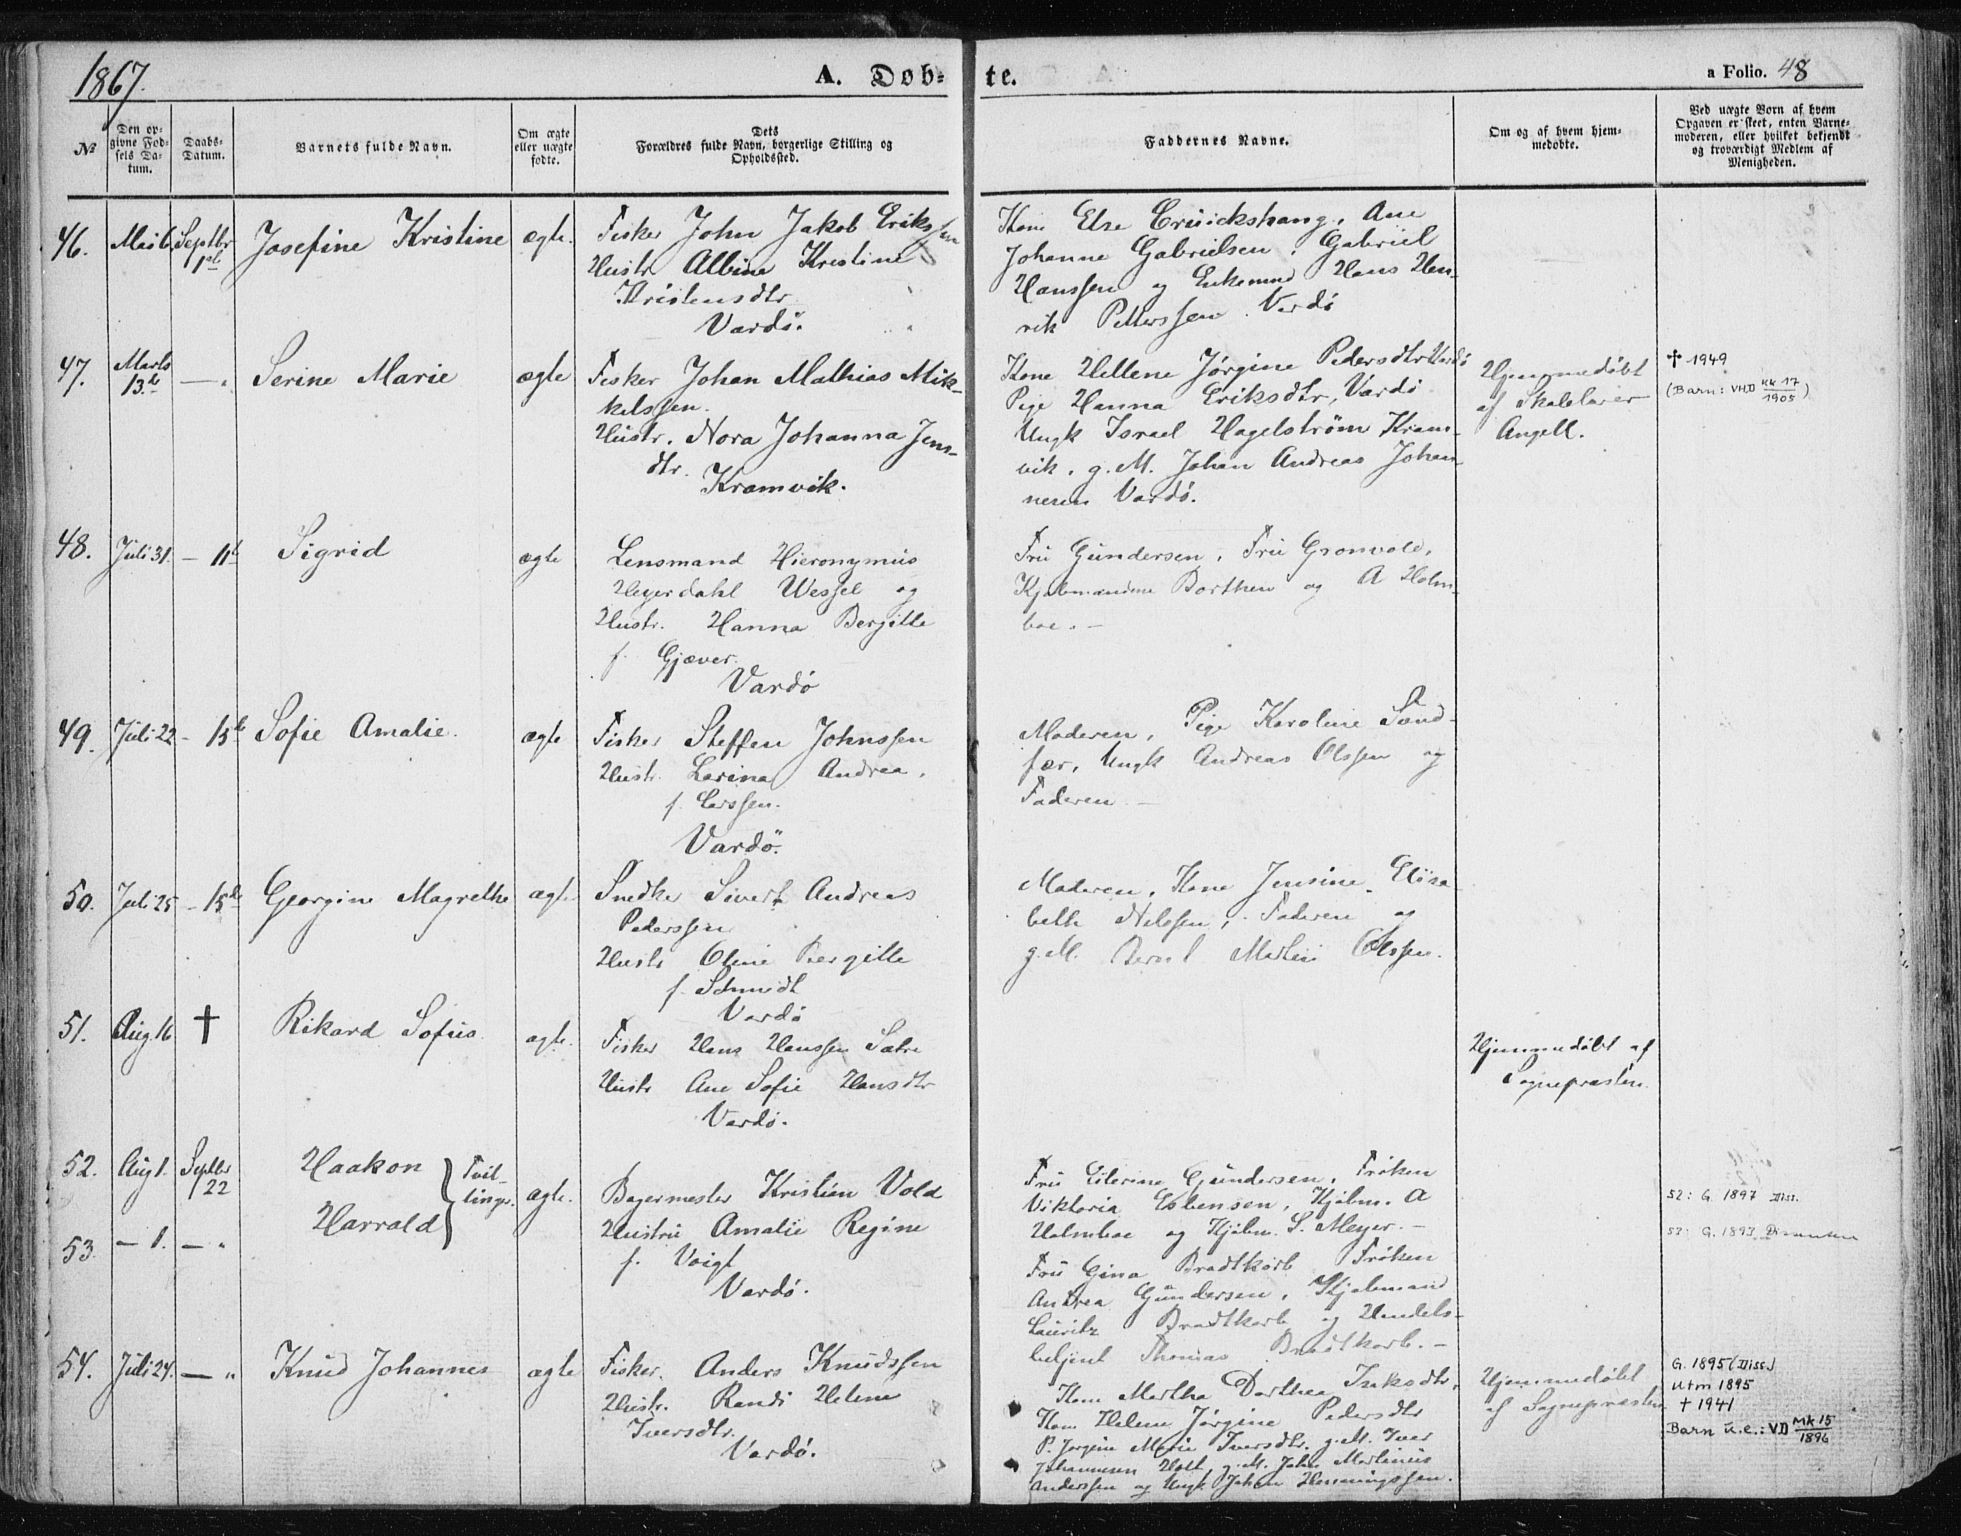 1867.
A. Døb-
te.
a Folio. 48
№
Den op-
givne Fød-
sels Da-
tum.
Daabs-
Datum.
Barnets fulde Navn.
Om ægte
eller uægte
fødte.
Dets
Forældres fulde Navn, borgerlige Stilling og
Opholdssted.
Faddernes Navne.
Om og af hvem hjem-
medøbte.
Ved uægte Børn af hvem
Opgaven er skeet, enten Barne-
moderen, eller hvilket bekjendt
og troværdigt Medlem af
Menigheden.
46.
Mai 6.
Septbr
1ste
Josefine Kristine
ægte.
Fisker John Jakob Erikssen
Hustr. Albine Kristine
Kristensdtr
Vardö.
Kone Else Cruickshang, Ane
Johanne Gabrielsen, Gabriel
Hanssen og Enkemnd Hans Hen-
rik Petterssen Vardö
47.
Marts
13de
— "
Serine Marie
ægte
Fisker Johan Mathias Mik-
kelssen.
Hustr. Nora Johanna Jens-
dtr.
Kramvik.
Kone Hellene Jørgine Pedersdtr Vardö
Pige Hanna Eriksdtr, Vardö
Ungk Israel Hagelstrøm Kram-
vik, g. M. Johan Andreas Johan-
nesen Vardö.
Hjemmedöbt
af Skolelærer
Angell.
✝ 1949
(Barn: VHD KK 17
1905)
48.
Juli 31.
— 11te
Sigrid
ægte
Lensmand Hieronymus
Heyerdahl Wessel og
Hustr. Hanna Bergitte
f. Gjæver.
Vardö
Fru Gundersen, Fru Gronvold,
Kjøbmændene Borthen og A Holm-
boe. —
49.
Juli 22
- 15de
Sofie Amalie.
ægte
Fisker Steffen Johnssen
Hustr. Larina Andrea,
f. Larssen.
Vardö.
Moderen, Pige Karoline Sand-
fær, Ungk Andreas Olssen og
Faderen —
50.
Juli 25
- 15de
Georgine Magrethe
ægte
Snedker Sivert Andreas
Pederssen
Hustr Oline Bergitte
f. Schmidt
Vardö
Moderen, Kone Jensine Elisa-
beth Nilssen, Faderen og
g. M. Bernt Martin Olssen.
51.
Aug. 16
✝
Rikard Sofus
ægte.
Fisker Hans Hanssen Sætre
Hustr Ane Sofie Hansdtr
Vardö.
Hjemmedöbt af
Sognepræsten.
52.
Aug 1.
Septbr
22
Haakon
Tvil-
linger.
ægte.
Harrald
53.
— 1.
— "
Bagermester Kristian Vold
Hustru Amalie Regine
f. Voigt
Vardö.
Fru Eilerine Gundersen, Frøken
Viktoria Esbensen, Kjøbm. A
Holmboe og Kjøbm. S. Meyer. —
Fru Gina Brodtkorb Frøken
Andrea Gundersen, Kjøbmand
Lauritz Brodtkorb og Handels-
betjent Thomas Brodtkorb. —
52: G. 1897 Diss.
53: G. 1893
54.
Juli 24.
— "
Knud Johannes
ægte
Fisker. Anders Knudssen
Hustr. Randi Helene
Iversdtr.
Vardö.
Kone Martha Dorthea
Kone Helene Jørgine Pedersdtr
P. Jorgine Marie Iversdtr. g. M. Iver
Johannesen Holt, g. M. John Martinius
Anderssen og Ungk Johan Henningssen.
Hjemmedöbt
af Sognepræsten
G. 1895 (Diss.)
Utm 1895
✝ 1941
Barn u.e.: VD MK 15
1896